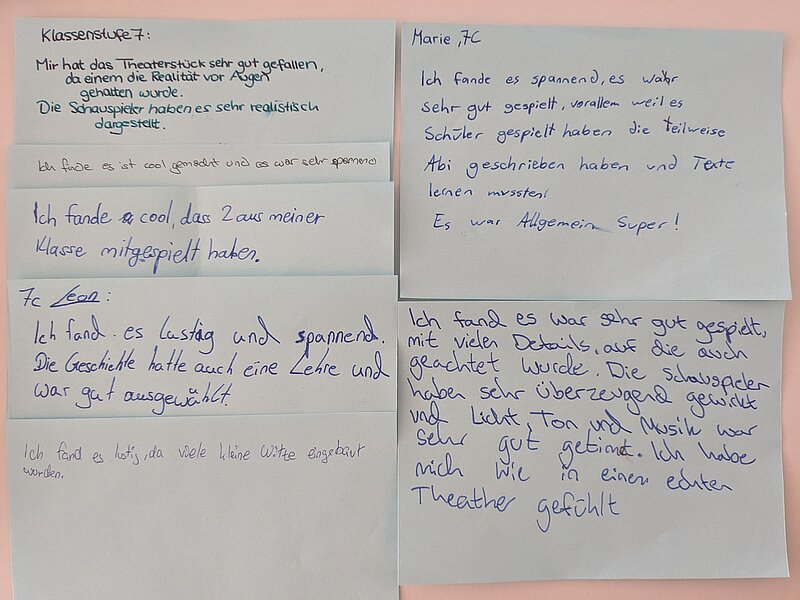 Klassenstufe 7:
Mir hat das Theaterstück sehr gut gefallen,
da einem die Realität vor Augen
gehalten wurde.
Die Schauspieler haben es sehr realistisch
dargestellt.
Ich finde es ist cool gemacht und es war sehr spannend
Ich fande cool, dass 2 aus meiner
Klasse mitgespielt haben.
7c Leon:
Ich fand es lustig und spannend.
Die Geschichte hatte auch eine Lehre und
war gut ausgewählt.
Ich fand es lustig, da viele kleine Witze eingebaut
wurden.
Marie, 7C
Ich fande es spannend, es wahr
sehr gut gespielt, vorallem weil es
Schüler gespielt haben die teilweise
Abi geschrieben haben und Texte
lernen mussten!
Es war Allgemein Super!
Ich fand es war sehr gut gespielt,
mit vielen Details, auf die auch
geachtet wurde. Die schauspieler
haben sehr überzeugend gewirkt
und Licht, Ton und Musik war
sehr gut getimt. Ich habe
mich wie in einem echten
Theather gefühlt